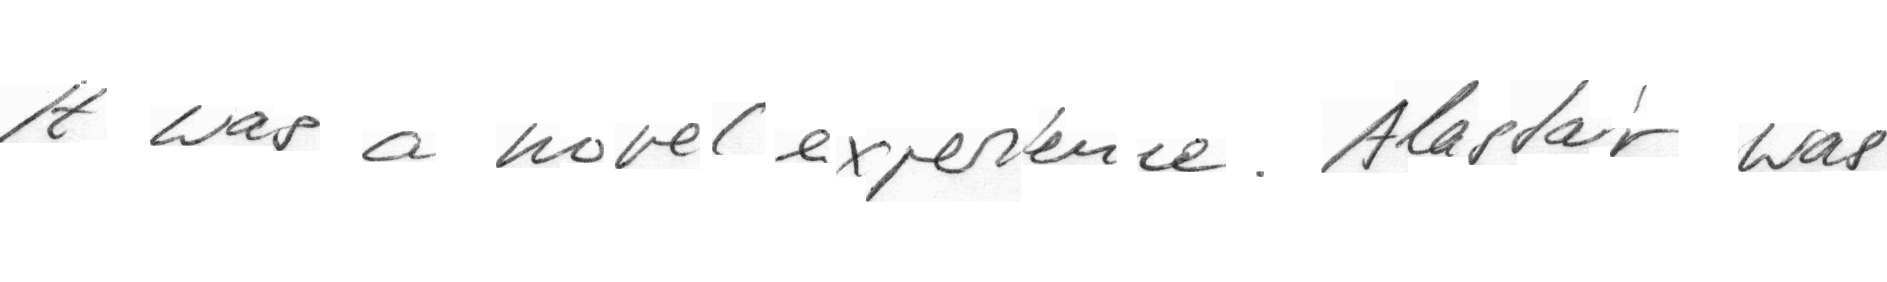 It was a novel experience. Alastair was